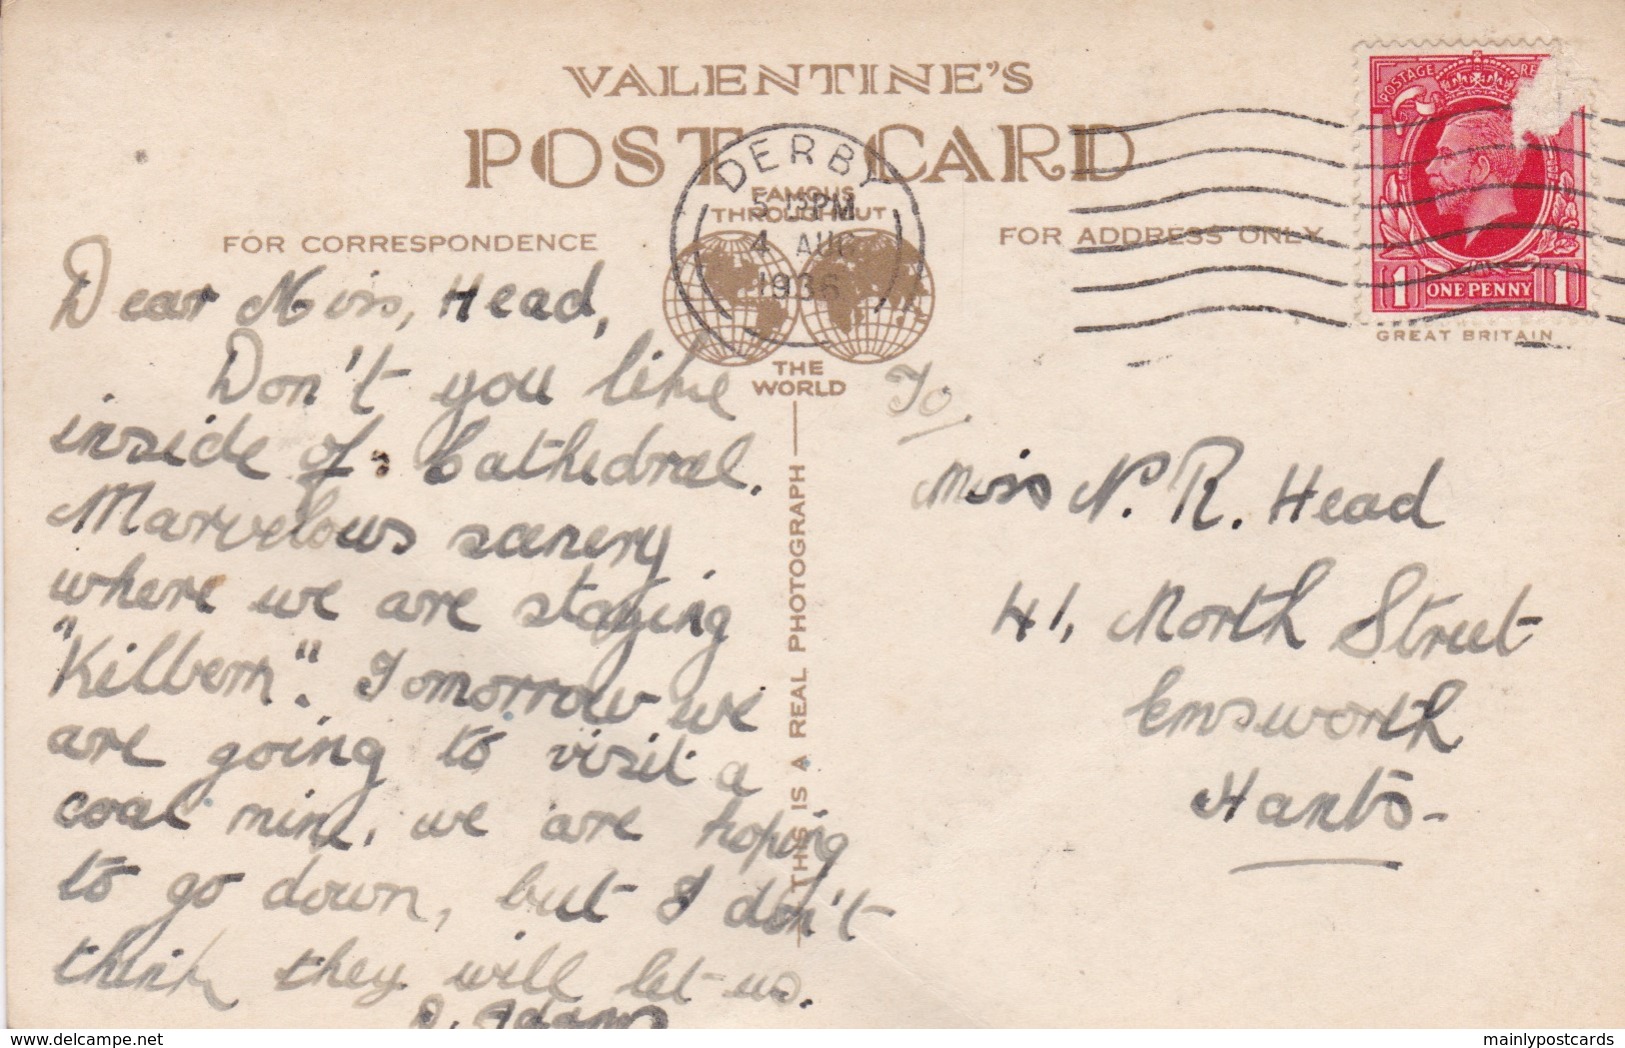 VALENTINE'S
POST CARD
DERBY
5 15 PM
4 AUG
1936
FAMOUS
THROUGHOUT
THE
WORLD
FOR CORRESPONDENCE
FOR ADDRESS ONLY
POSTAGE RE
1 ONE PENNY 1
GREAT BRITAIN
Dear Miss, Head,
Don't you like
inside of Cathedral.
Marvelous scenery
where we are staying
"Kilbern". Tomorrow we
are going to visit a
coal mine, we are hoping
to go down, but I don't
think they will let us.
Adams
THIS IS A REAL PHOTOGRAPH
To
Miss N. R. Head
41, North Street
Emsworth
Hants-
delcampe.net
mainlypostcards